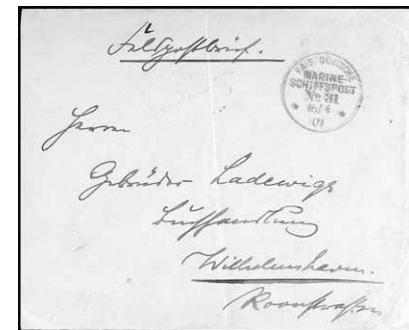 Feldpostbrief.
KAIS. DEUTSCHE
MARINE-
SCHIFFSPOST
No 31
16/4
01
Herren
Gebrüder Ladewigs
Buchhandlung
Wilhelmshaven.
Roonstraße